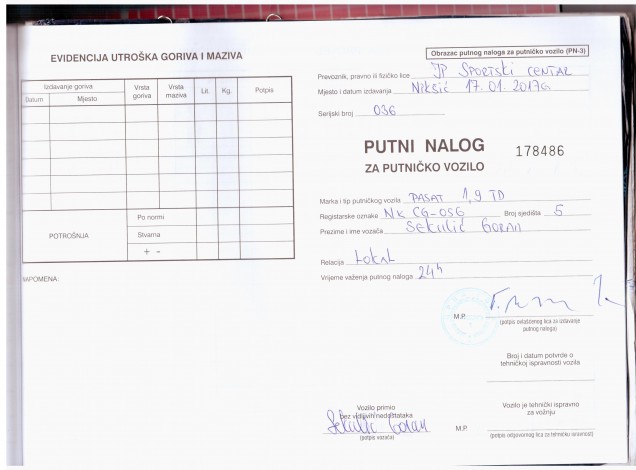 EVIDENCIJA UTROŠKA GORIVA I MAZIVA
Izdavanje goriva
Datum
Mjesto
Vrsta goriva
Vrsta maziva
Lit.
Kg.
Potpis
POTROŠNJA
Po normi
Stvarna
+ -
NAPOMENA:
Obrazac putnog naloga za putničko vozilo (PN-3)
Prevoznik, pravno ili fizičko lice JP SPORTSKI CENTAR
Mjesto i datum izdavanja NIKŠIĆ 17.01.2017G
Serijski broj 036
PUTNI NALOG
ZA PUTNIČKO VOZILO
178486
Marka i tip putničkog vozila PASAT 1,9 TD
Registarske oznake NK CG-056 Broj sjedišta 5
Prezime i ime vozača SEKULIĆ GORAN
Relacija LOKAL
Vrijeme važenja putnog naloga 24h
M.P.
(potpis ovlašćenog lica za izdavanje
putnog naloga)
Broj i datum potvrde o
tehničkoj ispravnosti vozila
Vozilo primio
bez vidljivih nedostataka
Sekulić Goran
(potpis vozača)
Vozilo je tehnički ispravno
za vožnju
M.P.
(potpis odgovornog lica za tehničku ispravnost)